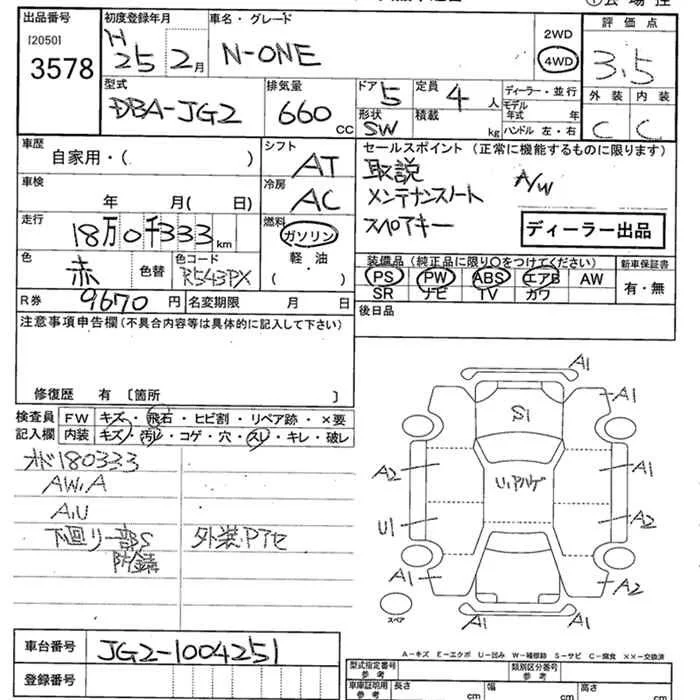 出品番号 初度登録年月 車名・グレード 評価点
[2050] H 2WD
3578 25 2月 N-ONE 4WD 3.5
型式 排気量 ドア 5 定員 4人 ディーラー・並行 外装 内装
DBA-JG2 660cc 形状 SW 積載 kg モデル年式 年 C C
ハンドル 左・右
車歴 シフト セールスポイント (正常に機能するものに限ります)
自家用・( ) AT 取説 A/W
車検 冷房 メンテナンスノート
年 月( 日) AC スペアキー
走行 燃料 ディーラー出品
18万0千333km ガソリン
色 色コード 軽・油 装備品 (純正品に限り○をつけてください) 新車保証書
赤 色替 R543PX ( ) PS PW ABS エアB AW 有・無
R券 9670円 名変期限 月 日 SR ナビ TV カワ
注意事項申告欄(不具合内容等は具体的に記入して下さい) 後日品
修復歴 有 〔箇所 〕
検査員 FW キズ・飛石・ヒビ割・リペア跡・×要
記入欄 内装 キズ・汚レ・コゲ・穴・スレ・キレ・破レ
オド180333
AW.A
A.U
下廻リ一部S 外装.Pアセ
防錆
A1
A1
S1
A2 A1
U1
U1 A2
A1 A2
スペア A1 A1
A-キズ E-エクボ U-凹み W-補修跡 S-サビ C-腐食 ××-交換済
車台番号 JG2-1004251
登録番号
型式指定番号 参考 類別区分番号 参考
車庫証明用 参考 長さ cm 幅 cm 高さ cm